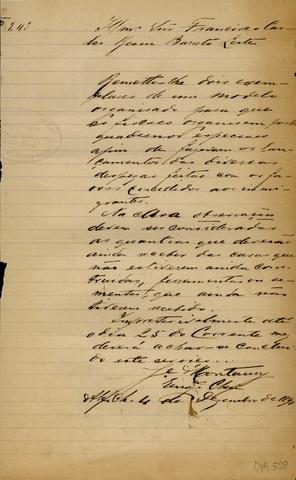 Illmo Snr Francisco Car-
los Barreto Leite
Remetto-lhe dois exem-
plares de um modelo
organisado para que
os fiscaes organisem
quadernos especiaes
afim de fazerem os lan-
çamentos das diversas
despezas feitas com os fa-
vores concedidos aos immi-
grantes.
Na clara observações
devem ser consideradas
as quantias que deverão
ainda receber das casas que
não estiverem ainda cons-
truidas, ferramentas ou se-
mentes, que ainda não
tiverem recebido.
Impreterivelmente até
o dia 25 do Corrente mez
deverá achar-se conclui-
do este serviço...
Montaury
Engo Chefe
4 de Dezembro de 189
DIR.528